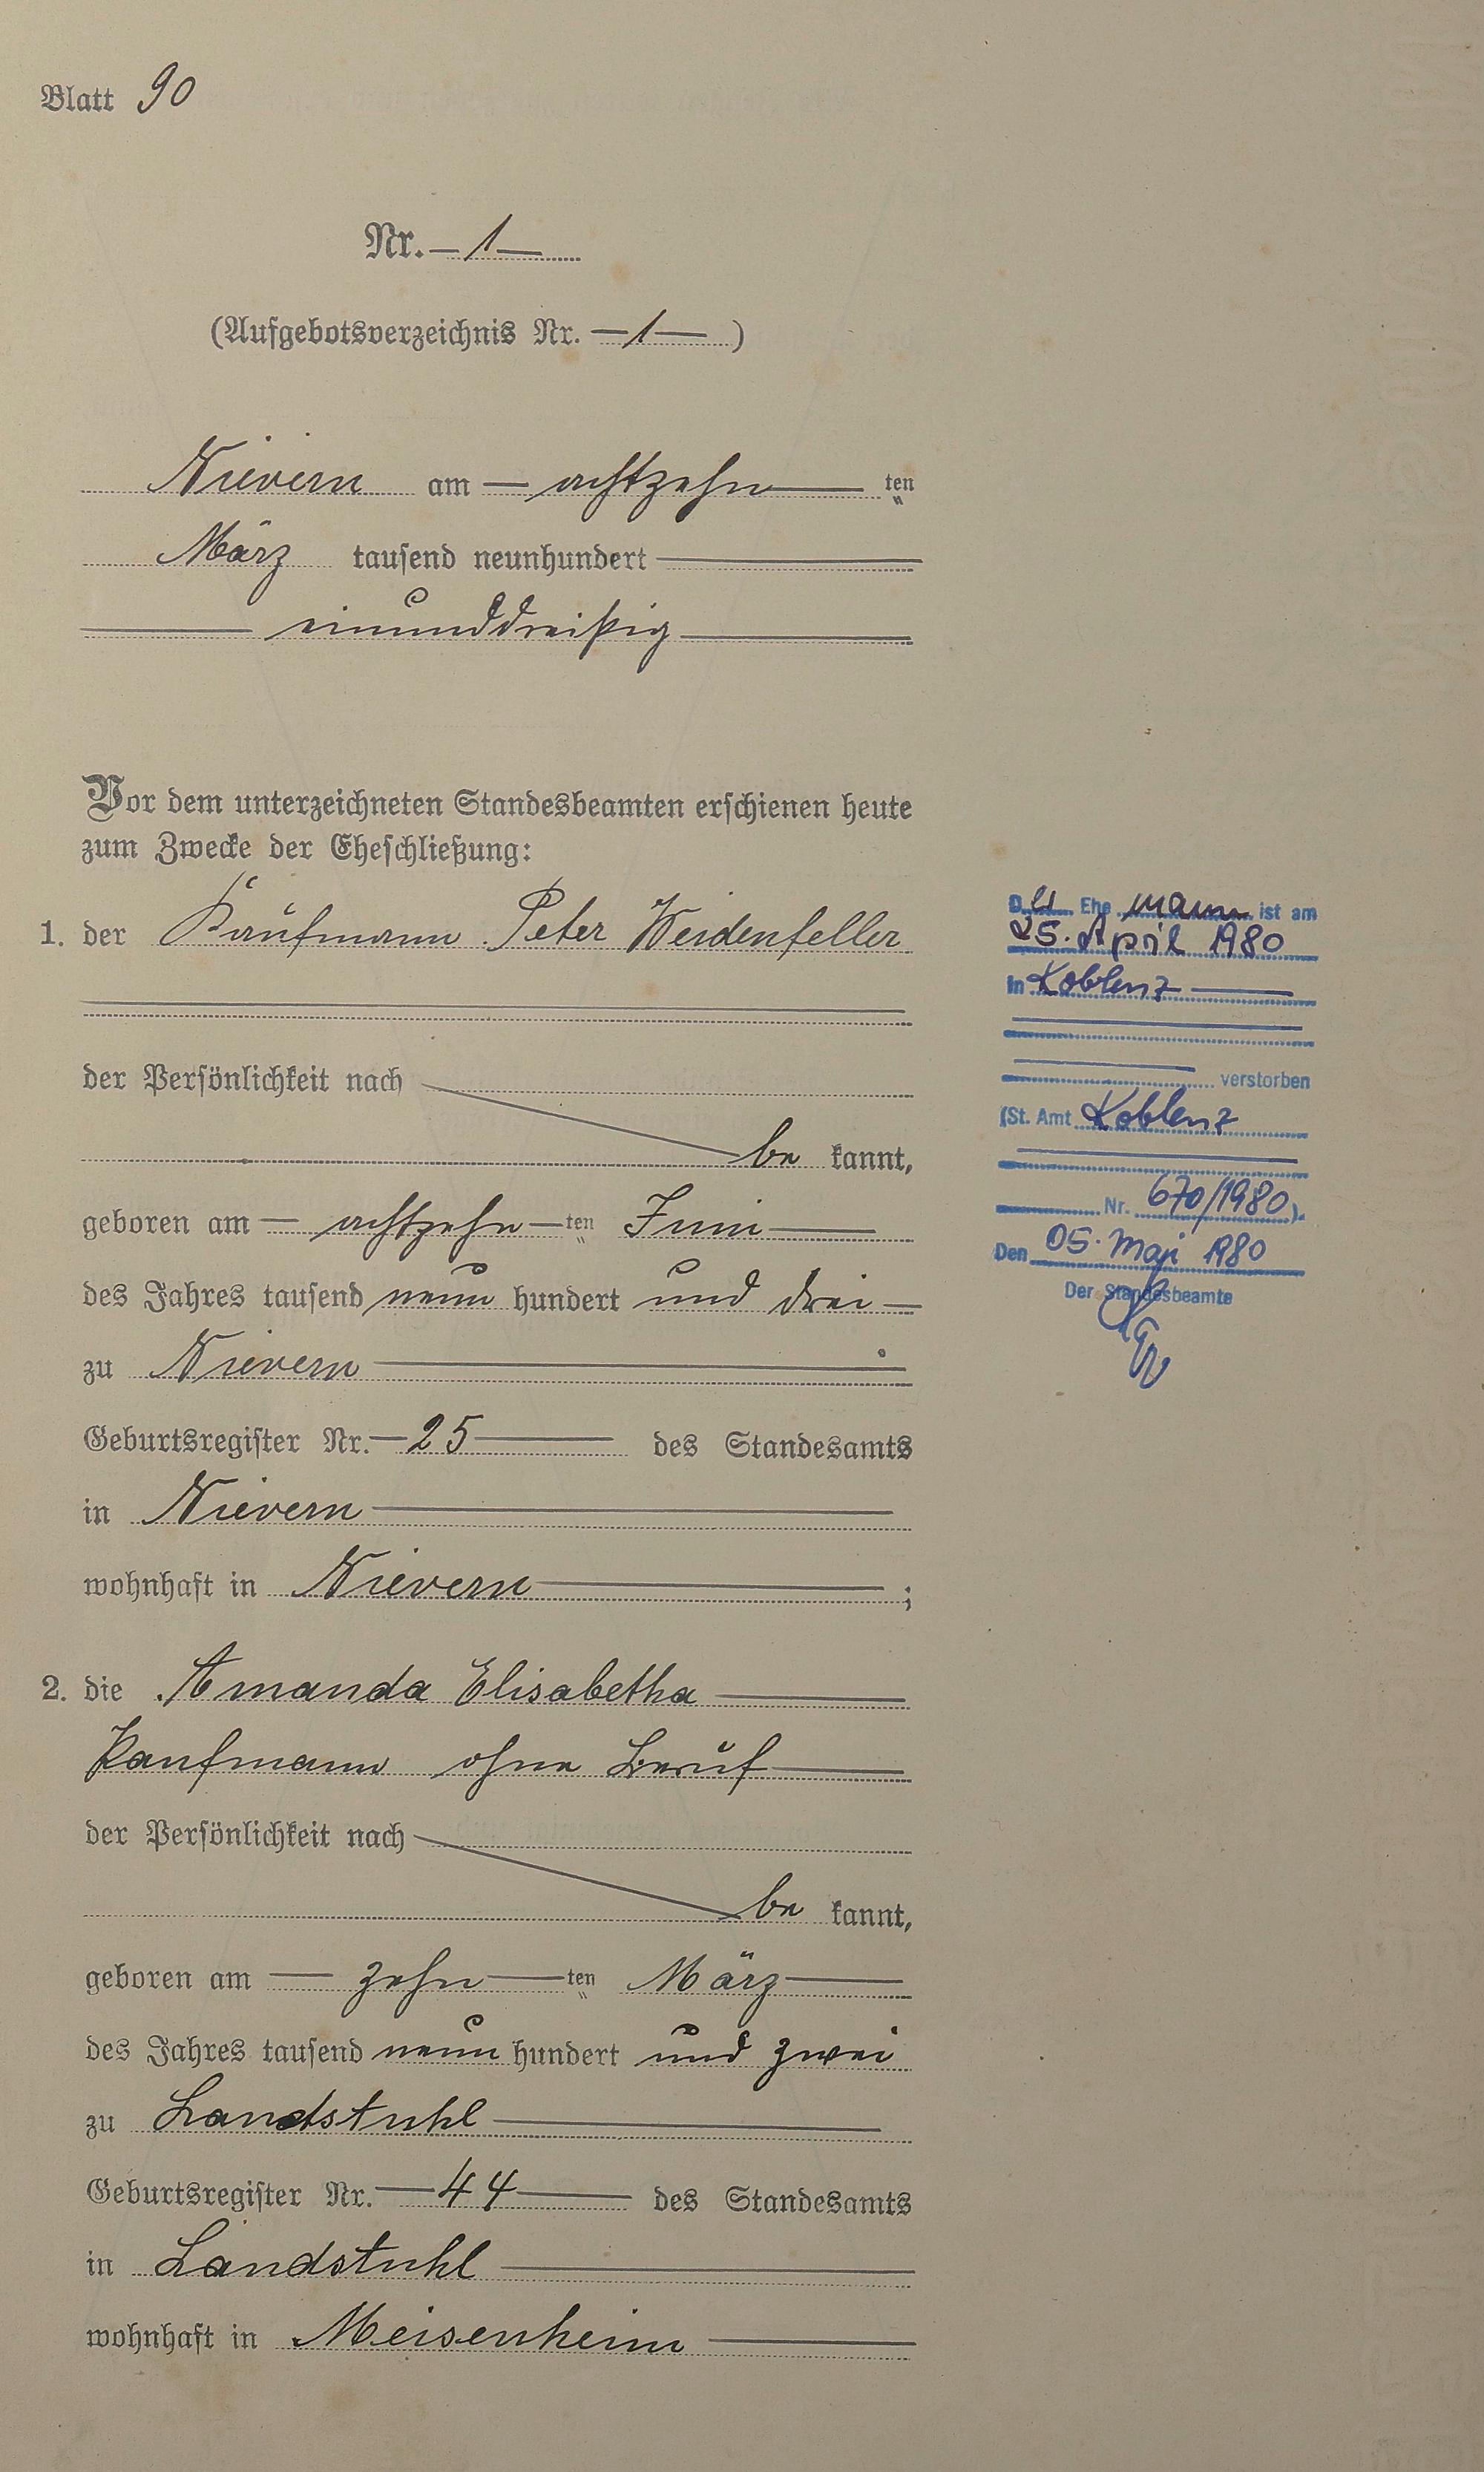 Blatt 90
Nr. 1
(Aufgebotsverzeichnis Nr. 1 )
Nievern am achtzehn ten
März tausend neunhundert
einunddreißig
Vor dem unterzeichneten Standesbeamten erschienen heute
zum Zwecke der Eheschließung:
1. der Kaufmann Peter Weidenfeller
der Persönlichkeit nach
be kannt,
geboren am achtzehn ten Juni
des Jahres tausend neun hundert und drei
zu Nievern
Geburtsregister Nr. 25 des Standesamts
in Nievern
wohnhaft in Nievern ;
2. die Amanda Elisabetha
Kaufmann ohne Beruf
der Persönlichkeit nach
be kannt,
geboren am zehn ten März
des Jahres tausend neun hundert und zwei
zu Landstuhl
Geburtsregister Nr. 44 des Standesamts
in Landstuhl
wohnhaft in Meisenheim
Der Ehemann ist am
25. April 1980
in Koblenz
verstorben
(St. Amt Koblenz
Nr. 670/1980).
Den 05. Mai 1980
Der Standesbeamte